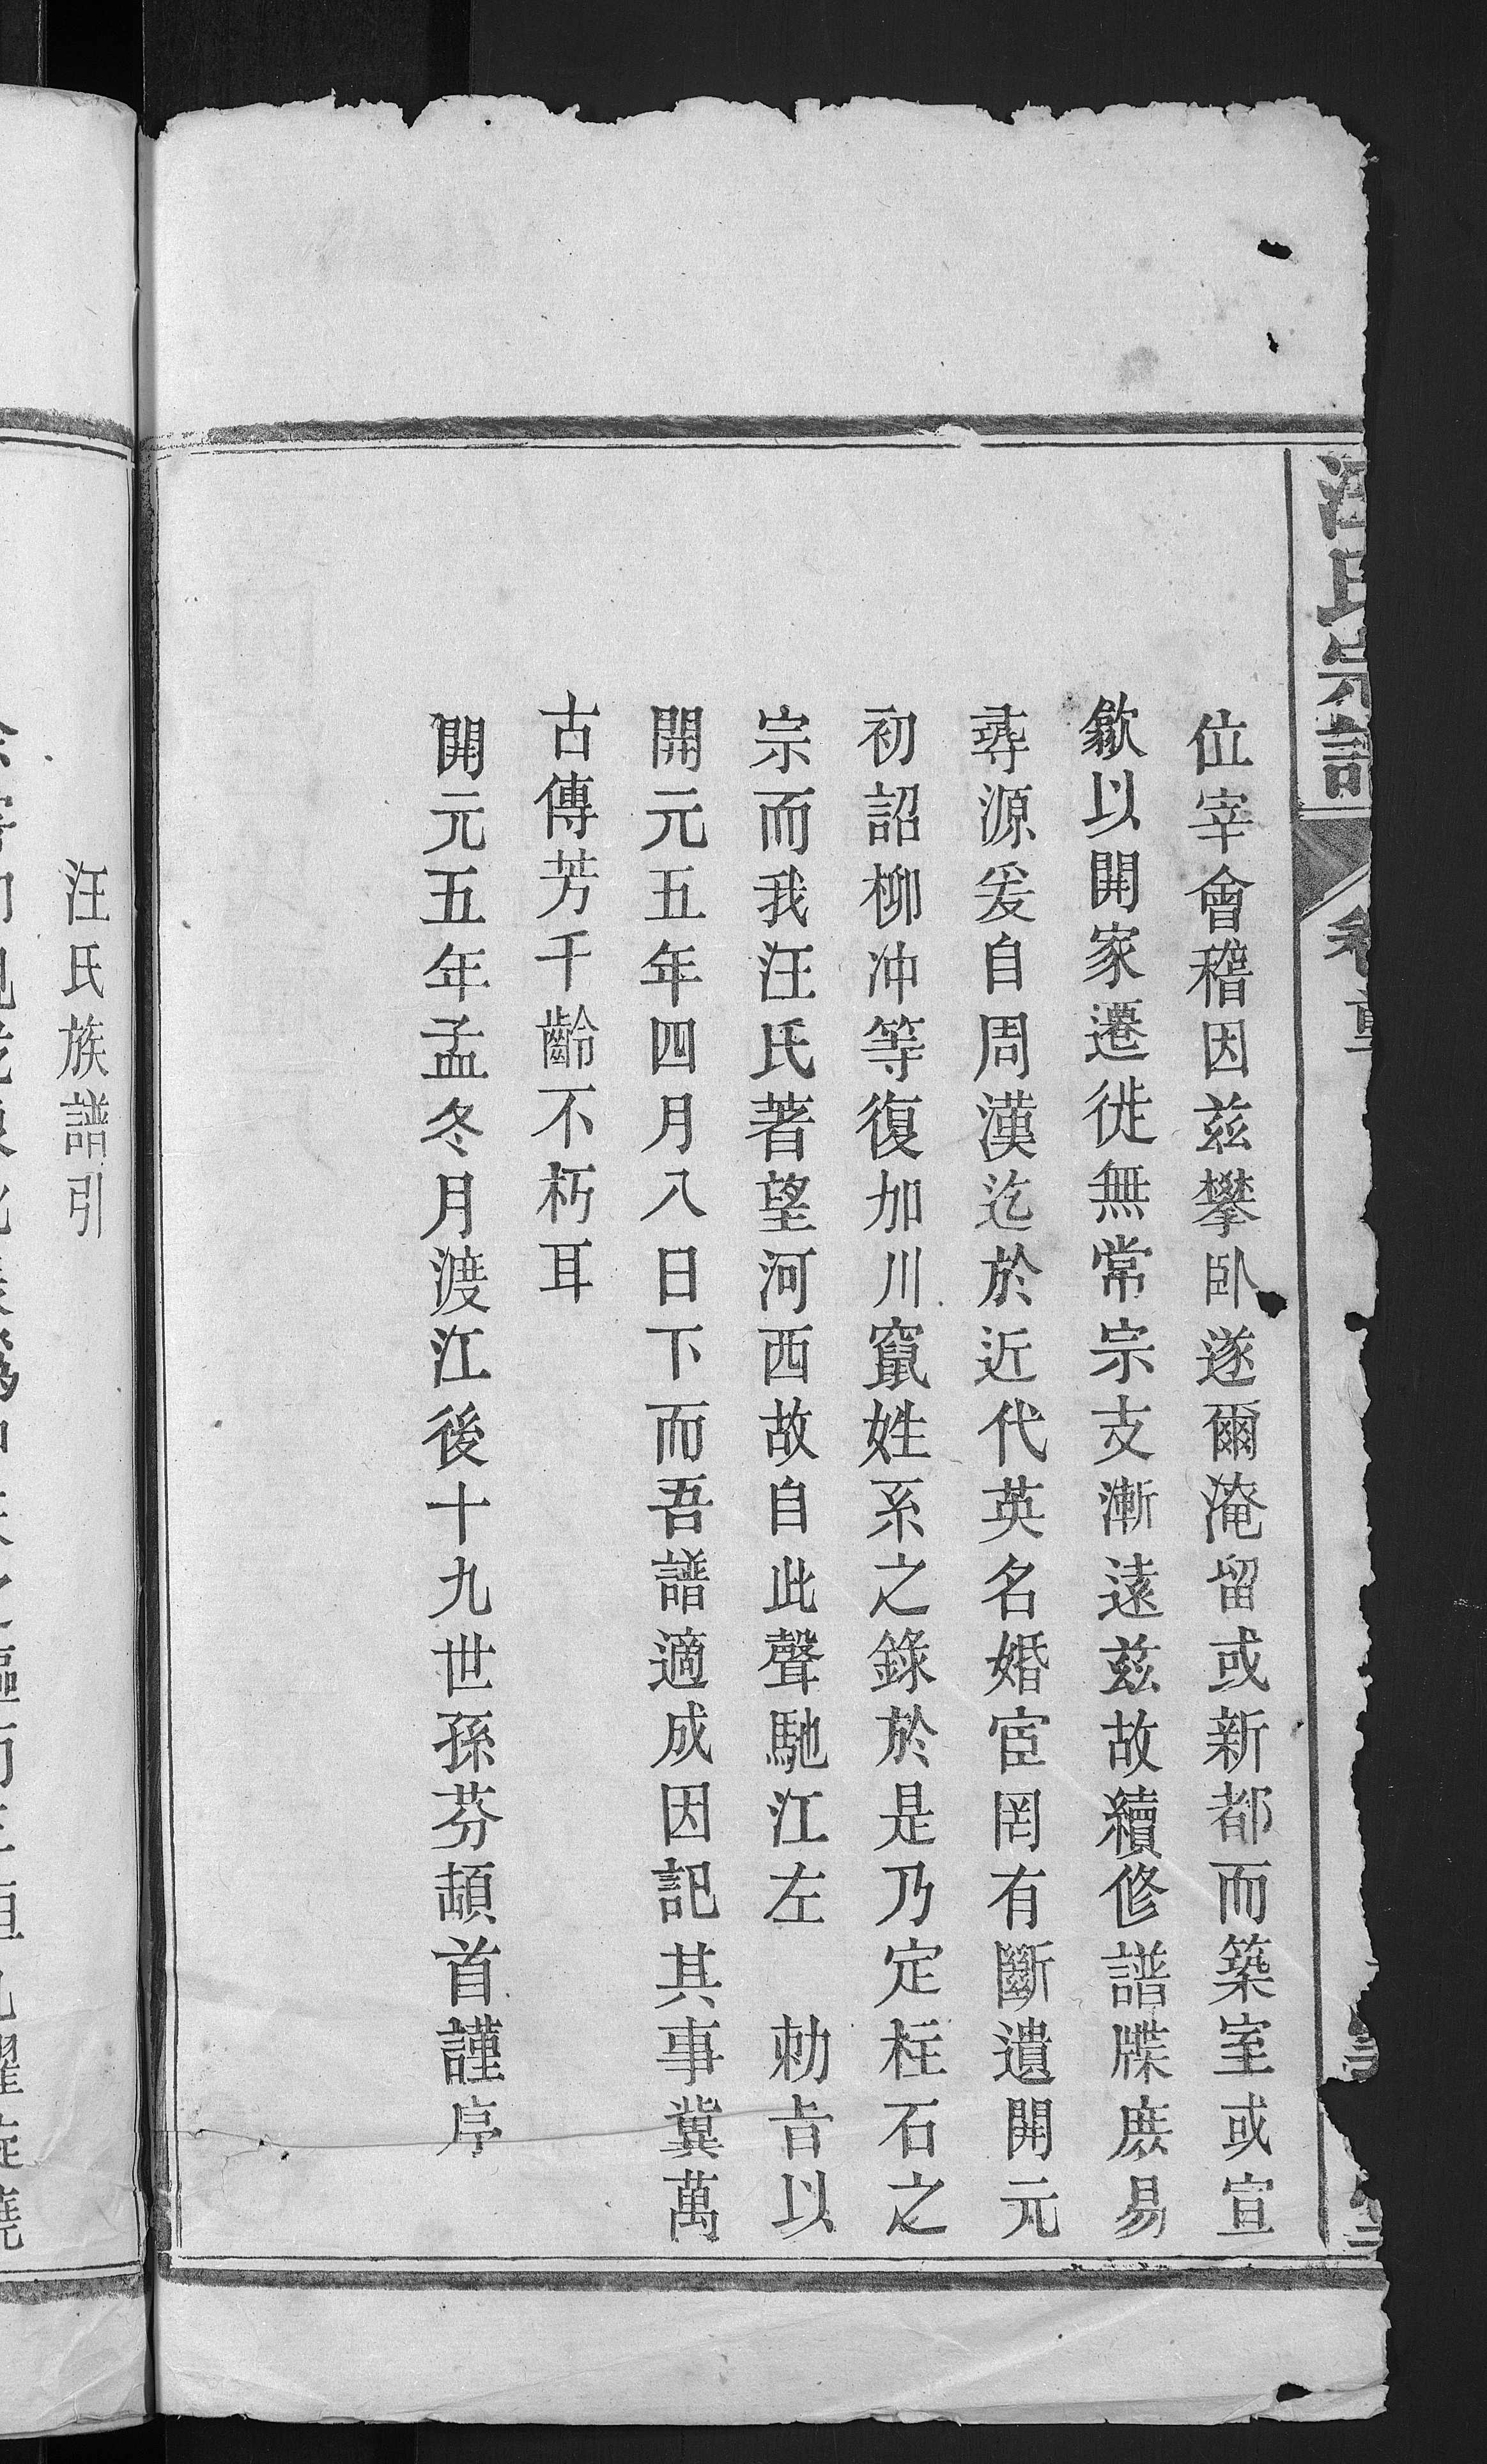 汪氏宗譜
位宰會稽因茲攀臥遂爾淹留或新都而築室或宣
歙以開家遷徙無常宗支漸遠茲故續修譜牒庶易
尋源爰自周漢迄於近代英名婚宦罔有斷遺開元
初詔柳冲等復加川竄姓系之錄於是乃定柱石之
宗而我汪氏著望河西故自此聲馳江左 勅旨以
開元五年四月八日下而吾譜適成因記其事冀萬
古傳芳千齡不朽耳
開元五年孟冬月渡江後十九世孫芬頓首謹序
汪氏族譜引